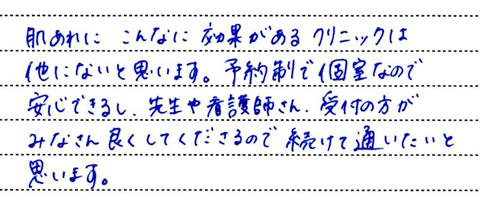 肌あれに こんなに 効果がある クリニックは
他にないと思います。予約制で個室なので
安心できるし、先生や看護師さん、受付の方が
みなさん良くしてくださるので 続けて通いたいと
思います。